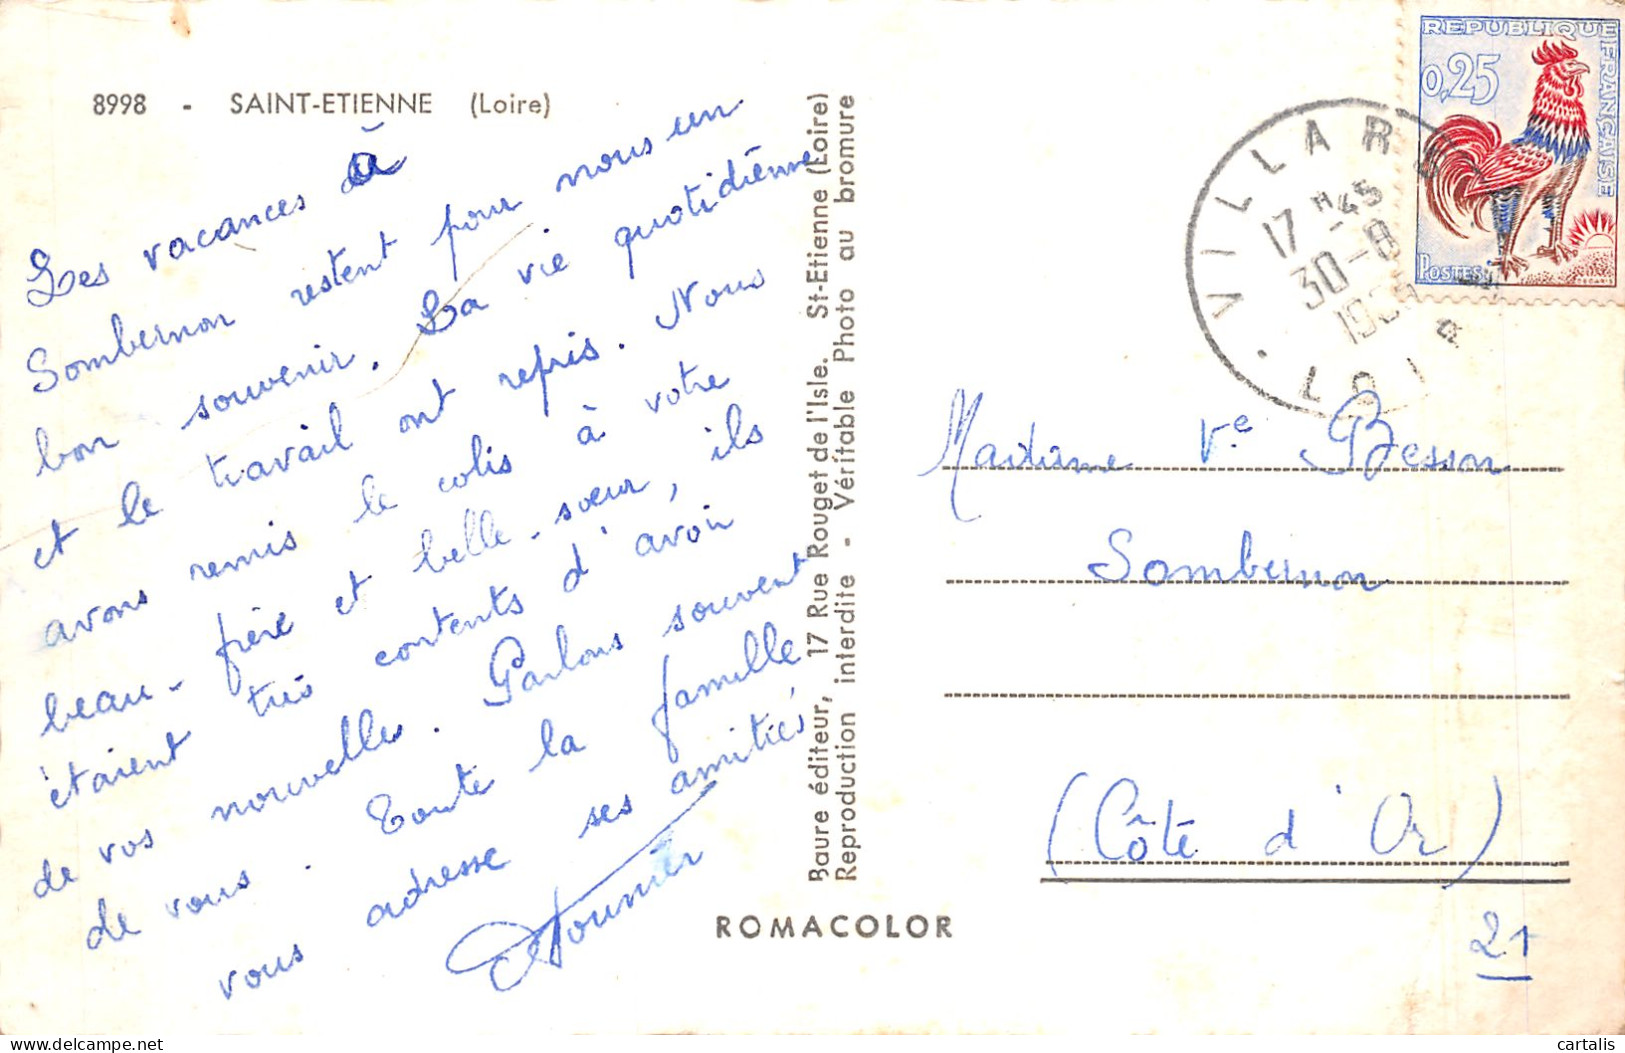 8998 - SAINT-ETIENNE (Loire)
Les vacances à
Sombernon restent pour nous un
bon souvenir. La vie quotidiénne
et le travail ont repris. Nous
avons remis le colis à votre
beau-frère et belle-soeur, ils
étaient très contents d'avoir
de vos nouvelles. Parlons souvent
de vous. Toute la famille
vous adresse ses amitiés
Baure éditeur, 17 Rue Rouget de l'Isle. St-Etienne (Loire)
Reproduction interdite - Véritable Photo au bromure
ROMACOLOR
REPUBLIQUE FRANÇAISE
0,25
POSTES
VILLARS
17 H 45
30-8
LOIRE
Madame Ve Besson
Sombernon
(Côte d'Or)
21
cartalis
delcampe.net